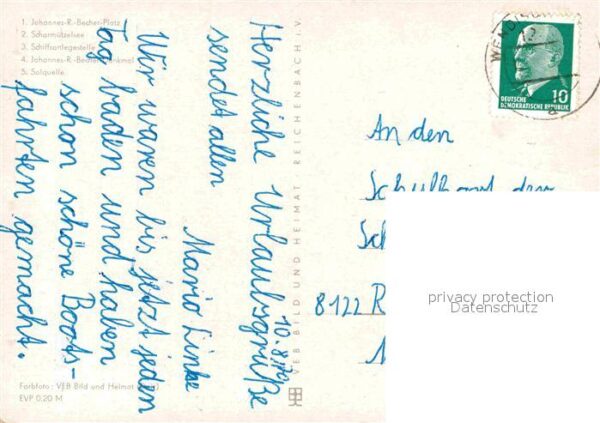 1. Johannes-R.-Becher-Platz
2. Scharmützelsee
3. Schiffsanlegestelle
4. Johannes-R.-Becher-Denkmal
5. Solquelle.
10.8.
Herzliche Urlaubsgrüße
sendet allen
Mario Linke
Wir waren bis jetzt jeden
Tag baden und haben
schon schöne Boots-
fahrten gemacht.
Farbfoto: VEB Bild und Heimat
EVP 0,20 M
VEB BILD UND HEIMAT REICHENBACH i.V.
WENDI
10
DEUTSCHE
DEMOKRATISCHE REPUBLIK
An den
Schulhort der
Sch
8122 R
privacy protection
Datenschutz